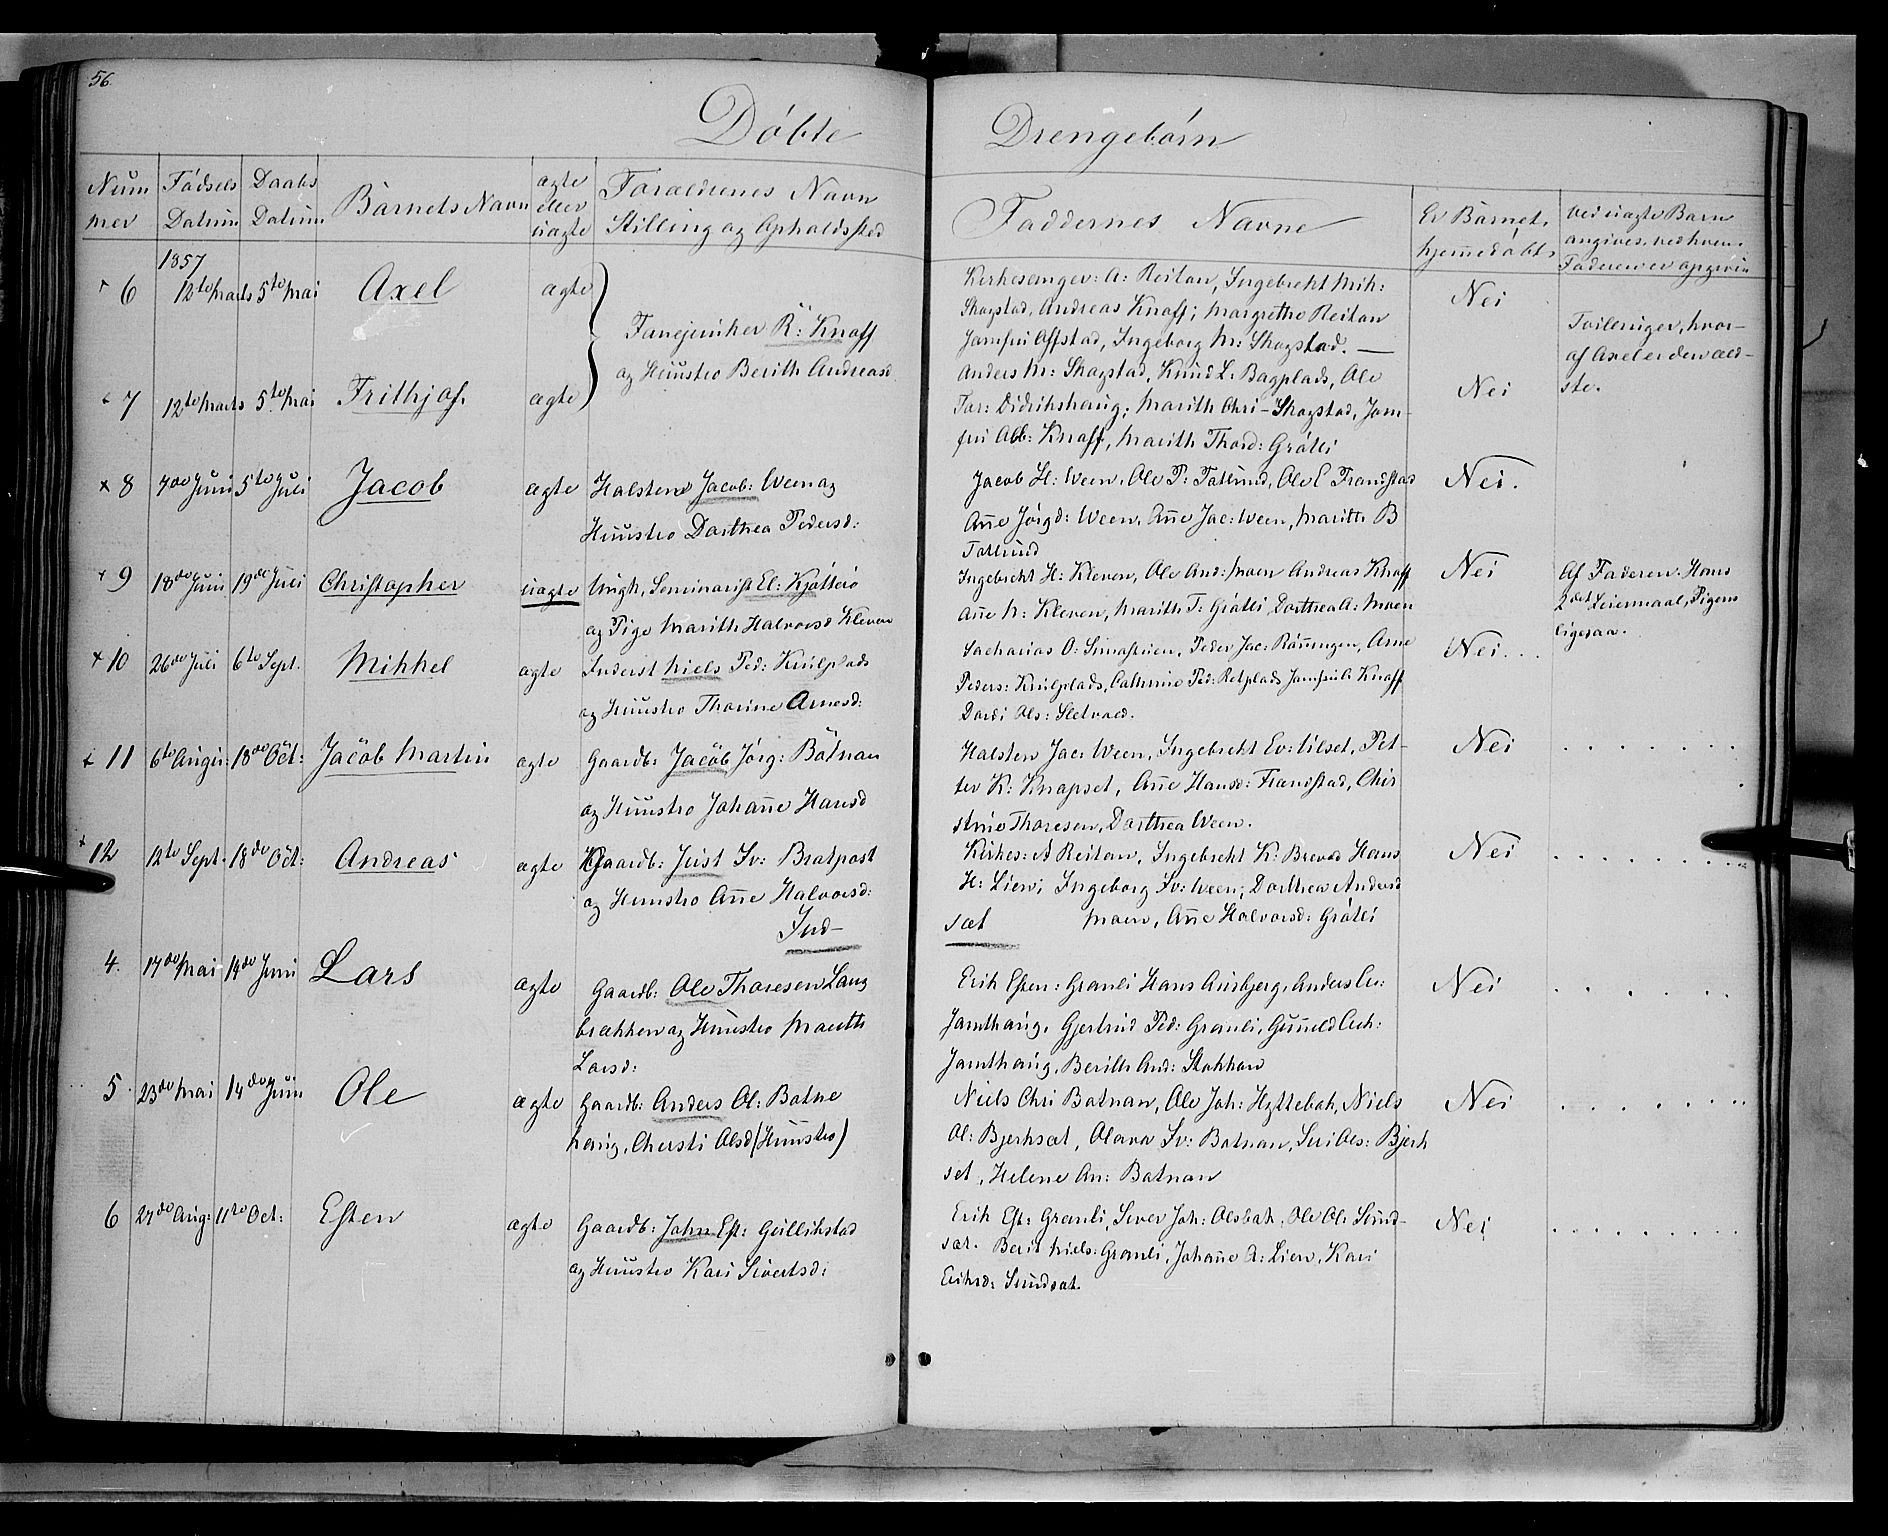 56.
Döbte Drengebörn
Num
mer
Födsels
Datum
Daabs
Datum
Barnets Navn
ægte
eller
uægte
Forældrenes Navn
Stilling og Opholdssted
Faddernes Navne
Er Barnet
hjemmedöbt
Ved uægte Børn
angives, ved hvem
Faderen er opgiven
1857
6 12te Marts 5te Mai Axel ægte
Fanejunker R: Knoff
og Hustro Berith Andreasd
Kirkesanger: A: Reitan, Ingebrekt Mik:
Skogstad, Andreas Knoff; Margrethe Reitan
Jomfru Affstad, Ingeborg M: Skogstad. —
Nei
Tvilenger, hvor-
af Axel er den æld-
ste.
7 12te Marts 5te Mai Frithjof. ægte
Anders M: Skogstad, Knud L. Bagplads, Ole
Tor: Didrikshaug; Marith Chri- Skogstad, Jom-
fru Alb: Knoff, Marith Thord: Gråtli
Nei
x 8 7de Juni 5te Juli Jacob ægte
Halsten Jacob: Ween og
Huustro Dorthea Pedersd:
Jacob H: Ween, Ole P: Tatlund, Ole E Frandstad
Anne Jörgd: Ween, Anne Jac: Ween, Marith B
Tatlund
Nei.
9 18de Juni 19de Juli Christopher uægte
Ungk, Seminarist El: Kjötterö
og Pige Marith Halvorsd Kleven
Ingebrekt H: Kleven, Ole And: Moen Andreas Knoff
Anne M: Kleven, Marith T: Gråtli, Dorthea A: Moen
Nei
Af Faderen: Hans
2det Leiermaal, Pigens
ligesaa.
x 10 26de Juli 6te Sept. Mikkel ægte
Inderst Niels Ped: Kulplads
og Huustro Thorine Arnesd:
Zacharias O: Simastuen, Peder Jac: Rönningen, Arne
Peders: Kulplads, Cathrine Ped: Retplads Jomfru L Knoff
Dordi Ols: Sletvold.
Nei...
11 6te Augu: 18de Oct: Jacob Martin ægte
Gaardb: Jacob Jörg: Botnan
og Huustro Johanne Hansd
Halsten Jac: Ween, Ingebrekt Ev: Vilset, Pet-
ter K: Knapset, Anne Hansd: Frandstad, Chir
stine Thoresen, Dorthea Ween.
Nei
12 12te Sept. 18de Oct: Andreas ægte
Gaardb: Just Iv: Bratpost
og Huustro Anne Halvorsd:
Kirkes: A Reitan, Ingebrekt K: Brevad Hans
H: Lien; Ingeborg Iv: Ween; Dorthea Andersd
Moen, Anne Halvorsd: Gråtli
Nei
Ind- sæt
4. 17de Mai 14de Juni Lars ægte
Gaardb: Ole Thoresen Lang
brækken og Huustro Marith
Larsd:
Erik Esten: Granli Hans Ausbjerg, Anders Er:
Jamthaug, Gjertrud Ped: Granli, Gunild Erik:
Jamthaug, Berith And: Stokkan
Nei
5 23de Mai 14de Juni Ole ægte
Gaardb: Anders Ol: Botne
haug, Chersti Olsd (Huustro)
Niels Chri Botnan, Ole Joh: Hyttebak, Niels
Ol: Bjerksæt, Olava Iv: Botnan, Siri Ols: Bjerk
set, Helene An: Botnan
Nei
6 27de Aug: 11te Oct: Esten ægte
Gaardb: John Est: Gullikstad
og Huustro Kari Sivertsd:
Erik Est: Granli, Siver Joh: Olsbak, Ole Ol: Sund-
sæt. Berit Niels: Granli, Johanne O: Lien, Kari
Eriksd: Sundsæt.
Nei